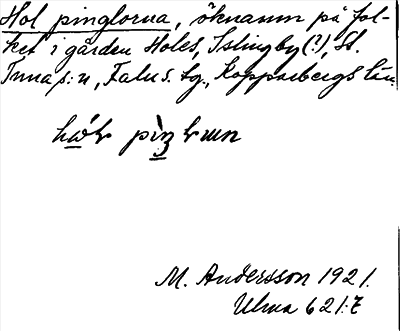 Hol pinglorna, öknamn på fol-
ket i gården Holes, Islingby (?), St.
Tuna s:n, Falu s. tg., Kopparbergs län.
M. Andersson 1921.
Ulma 621:7